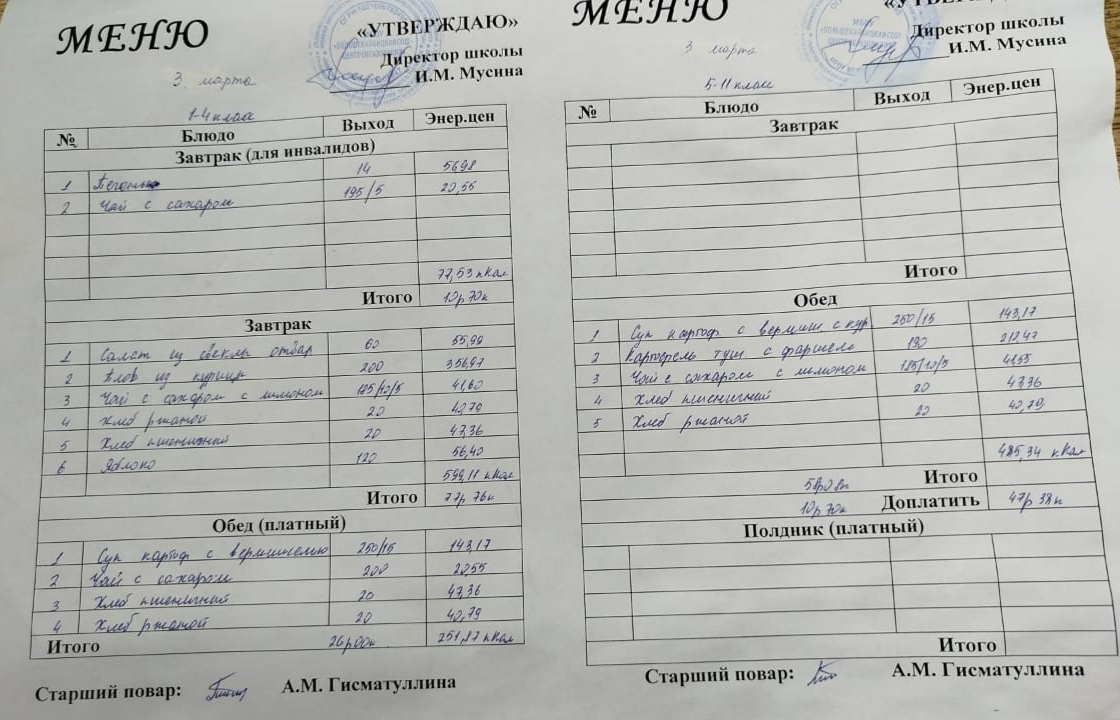 МЕНЮ
«УТВЕРЖДАЮ»
Директор школы
И.М. Мусина
3 марта
1-4 класс
№ Блюдо Выход Энер.цен
Завтрак (для инвалидов)
1 Печенье 14 56,98
2 Чай с сахаром 195/5 20,55
77,53 кКал
Итого 10р 70к
Завтрак
1 Салат из свеклы отвар 60 55,99
2 Плов из курицы 200 356,97
3 Чай с сахаром с лимоном 185/10/5 41,60
4 Хлеб ржаной 20 40,79
5 Хлеб пшеничный 20 47,36
6 Яблоко 120 56,40
599,11 кКал
Итого 77р 76к
Обед (платный)
1 Суп картоф с вермишелью 250/15 143,17
2 Чай с сахаром 200 20,55
3 Хлеб пшеничный 20 47,36
4 Хлеб ржаной 20 40,79
Итого 26р00к 251,87 кКал
Старший повар: А.М. Гисматуллина
МЕНЮ
Директор школы
И.М. Мусина
3 марта
5-11 класс
№ Блюдо Выход Энер.цен
Завтрак
Итого
Обед
1 Суп картоф с вермиш с кур 250/15 143,17
2 Картофель туш с фаршем 190 212,47
3 Чай с сахаром с лимоном 185/10/5 41,55
4 Хлеб пшеничный 20 47,36
5 Хлеб ржаной 20 40,79
485,34 кКал
Итого 58р08к
10р 70к Доплатить 47р 38к
Полдник (платный)
Итого
Старший повар: А.М. Гисматуллина